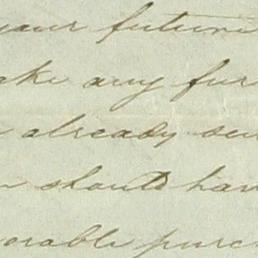 your future
ake any fur
already sen
should hav
orable purc